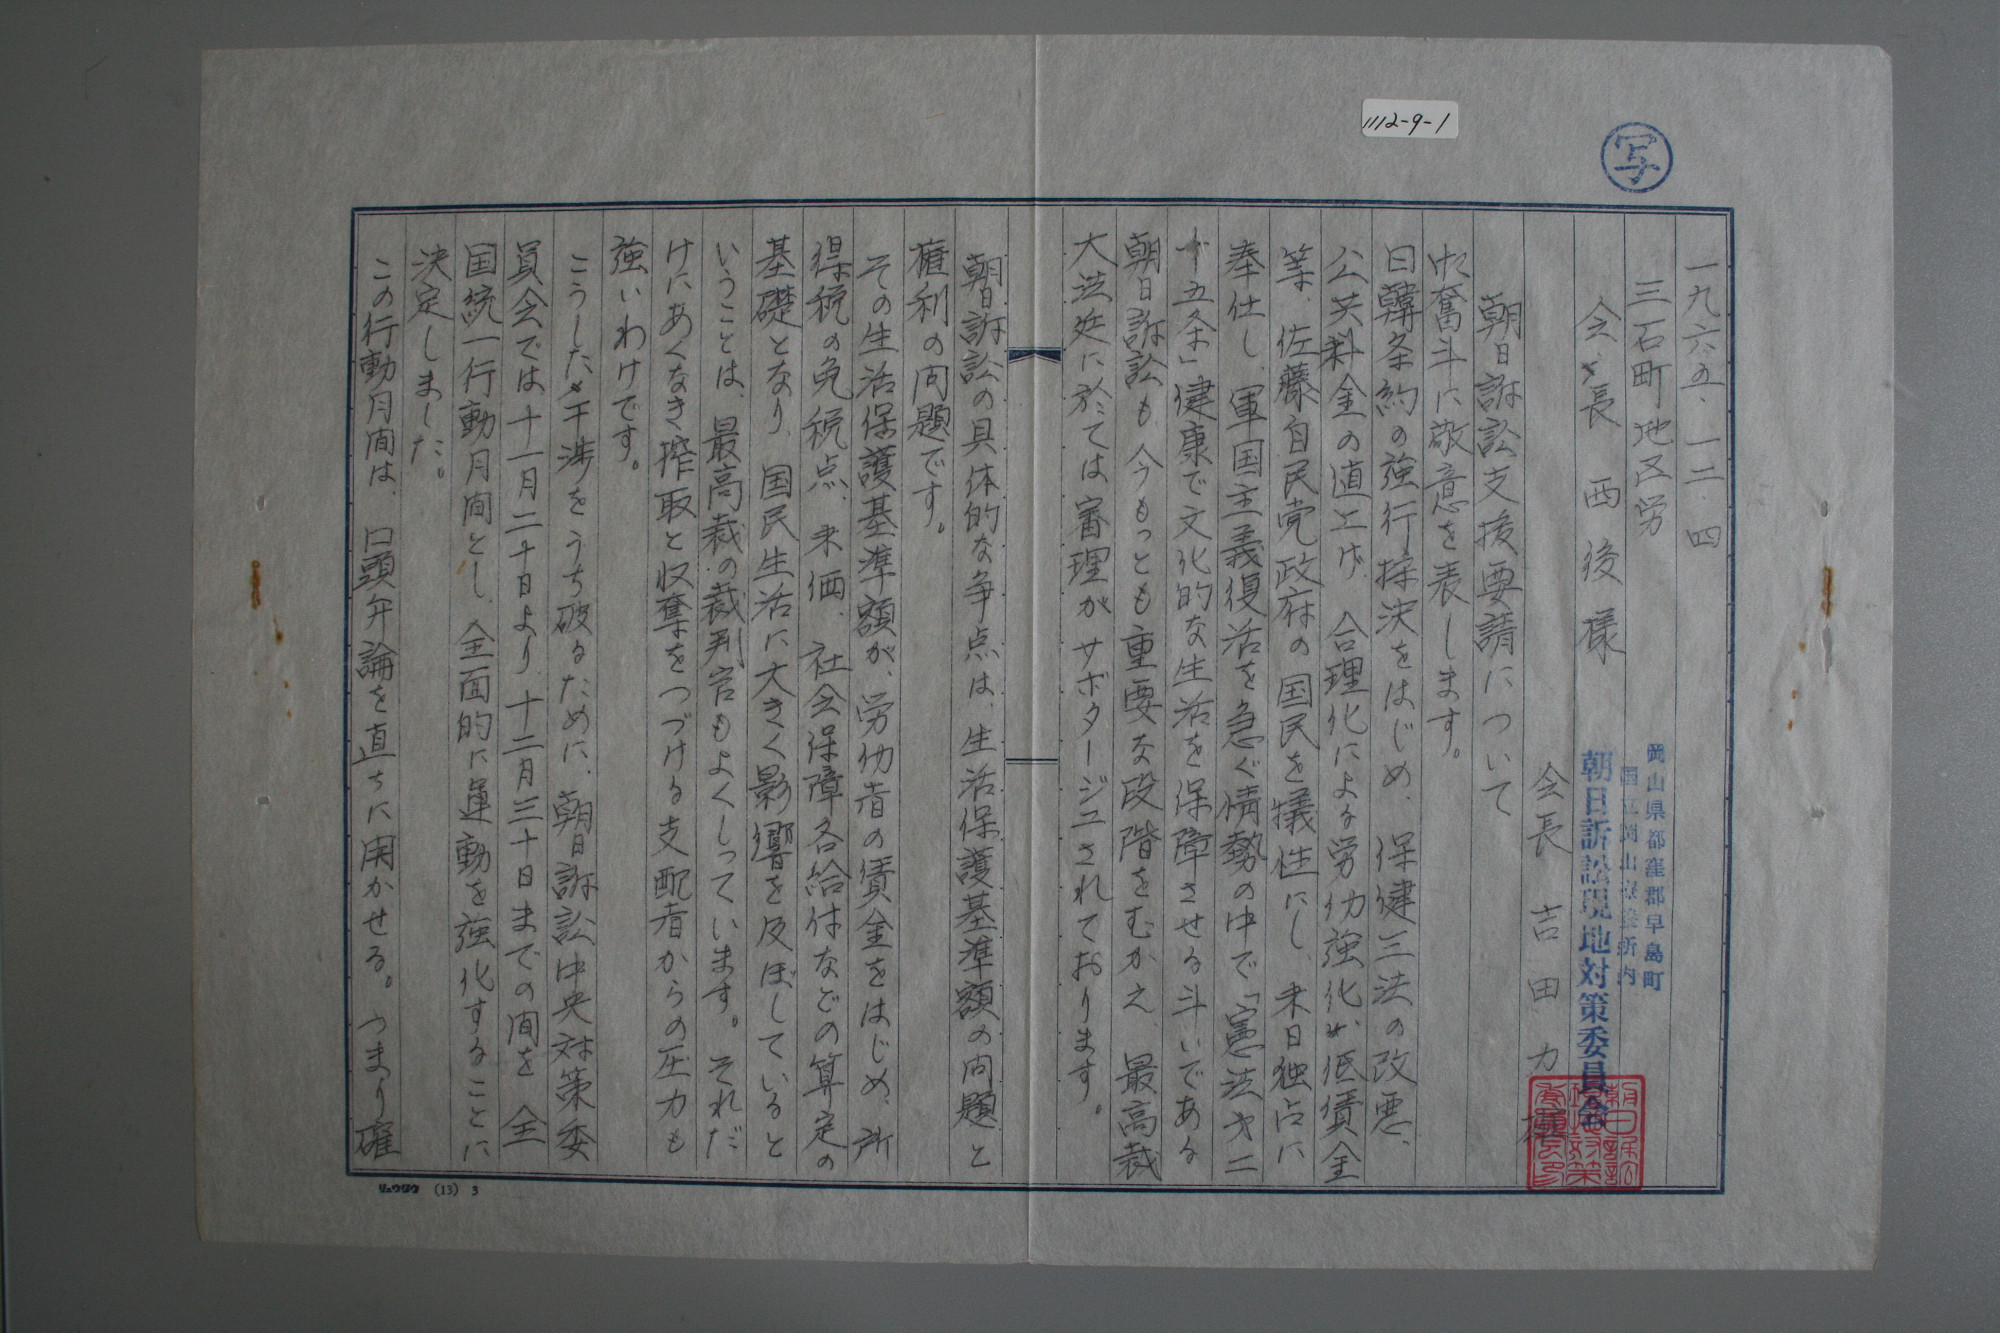 1112-9-1
写
一九六五．一二．四
三石町地区労
会長　西後様
岡山県都窪郡早島町
国立岡山療養所内
朝日訴訟現地対策委員会
会長　吉田力雄
朝日訴訟支援要請について
御奮斗に敬意を表します。
日韓条約の強行採決をはじめ、保健三法の改悪、
公共料金の値上げ、合理化による労仂強化が低賃金
等、佐藤自民党政府の国民を犠牲にし、米日独占に
奉仕し、軍国主義復活を急ぐ情勢の中で「憲法才二
十五条」健康で文化的な生活を保障させる斗いである
朝日訴訟も、今もっとも重要な段階をむかえ、最高裁
大法廷に於ては審理がサボタージュされております。
朝日訴訟の具体的な争点は、生活保護基準額の問題と
権利の問題です。
その生活保護基準額が、労仂者の賃金をはじめ、所
得税の免税点、米価、社会保障各給付などの算定の
基礎となり、国民生活に大きく影響を及ぼしていると
いうことは、最高裁の裁判官もよくしっています。それだ
けにあくなき搾取と収奪をつづける支配者からの圧力も
強いわけです。
こうした干渉をうち破るために、朝日訴訟中央対策委
員会では十一月二十日より、十二月三十日までの間を　全
国統一行動月間とし、全面的に運動を強化することに
決定しました。
この行動月間は、口頭弁論を直ちに開かせる。つまり確
リュウタク (13) 3